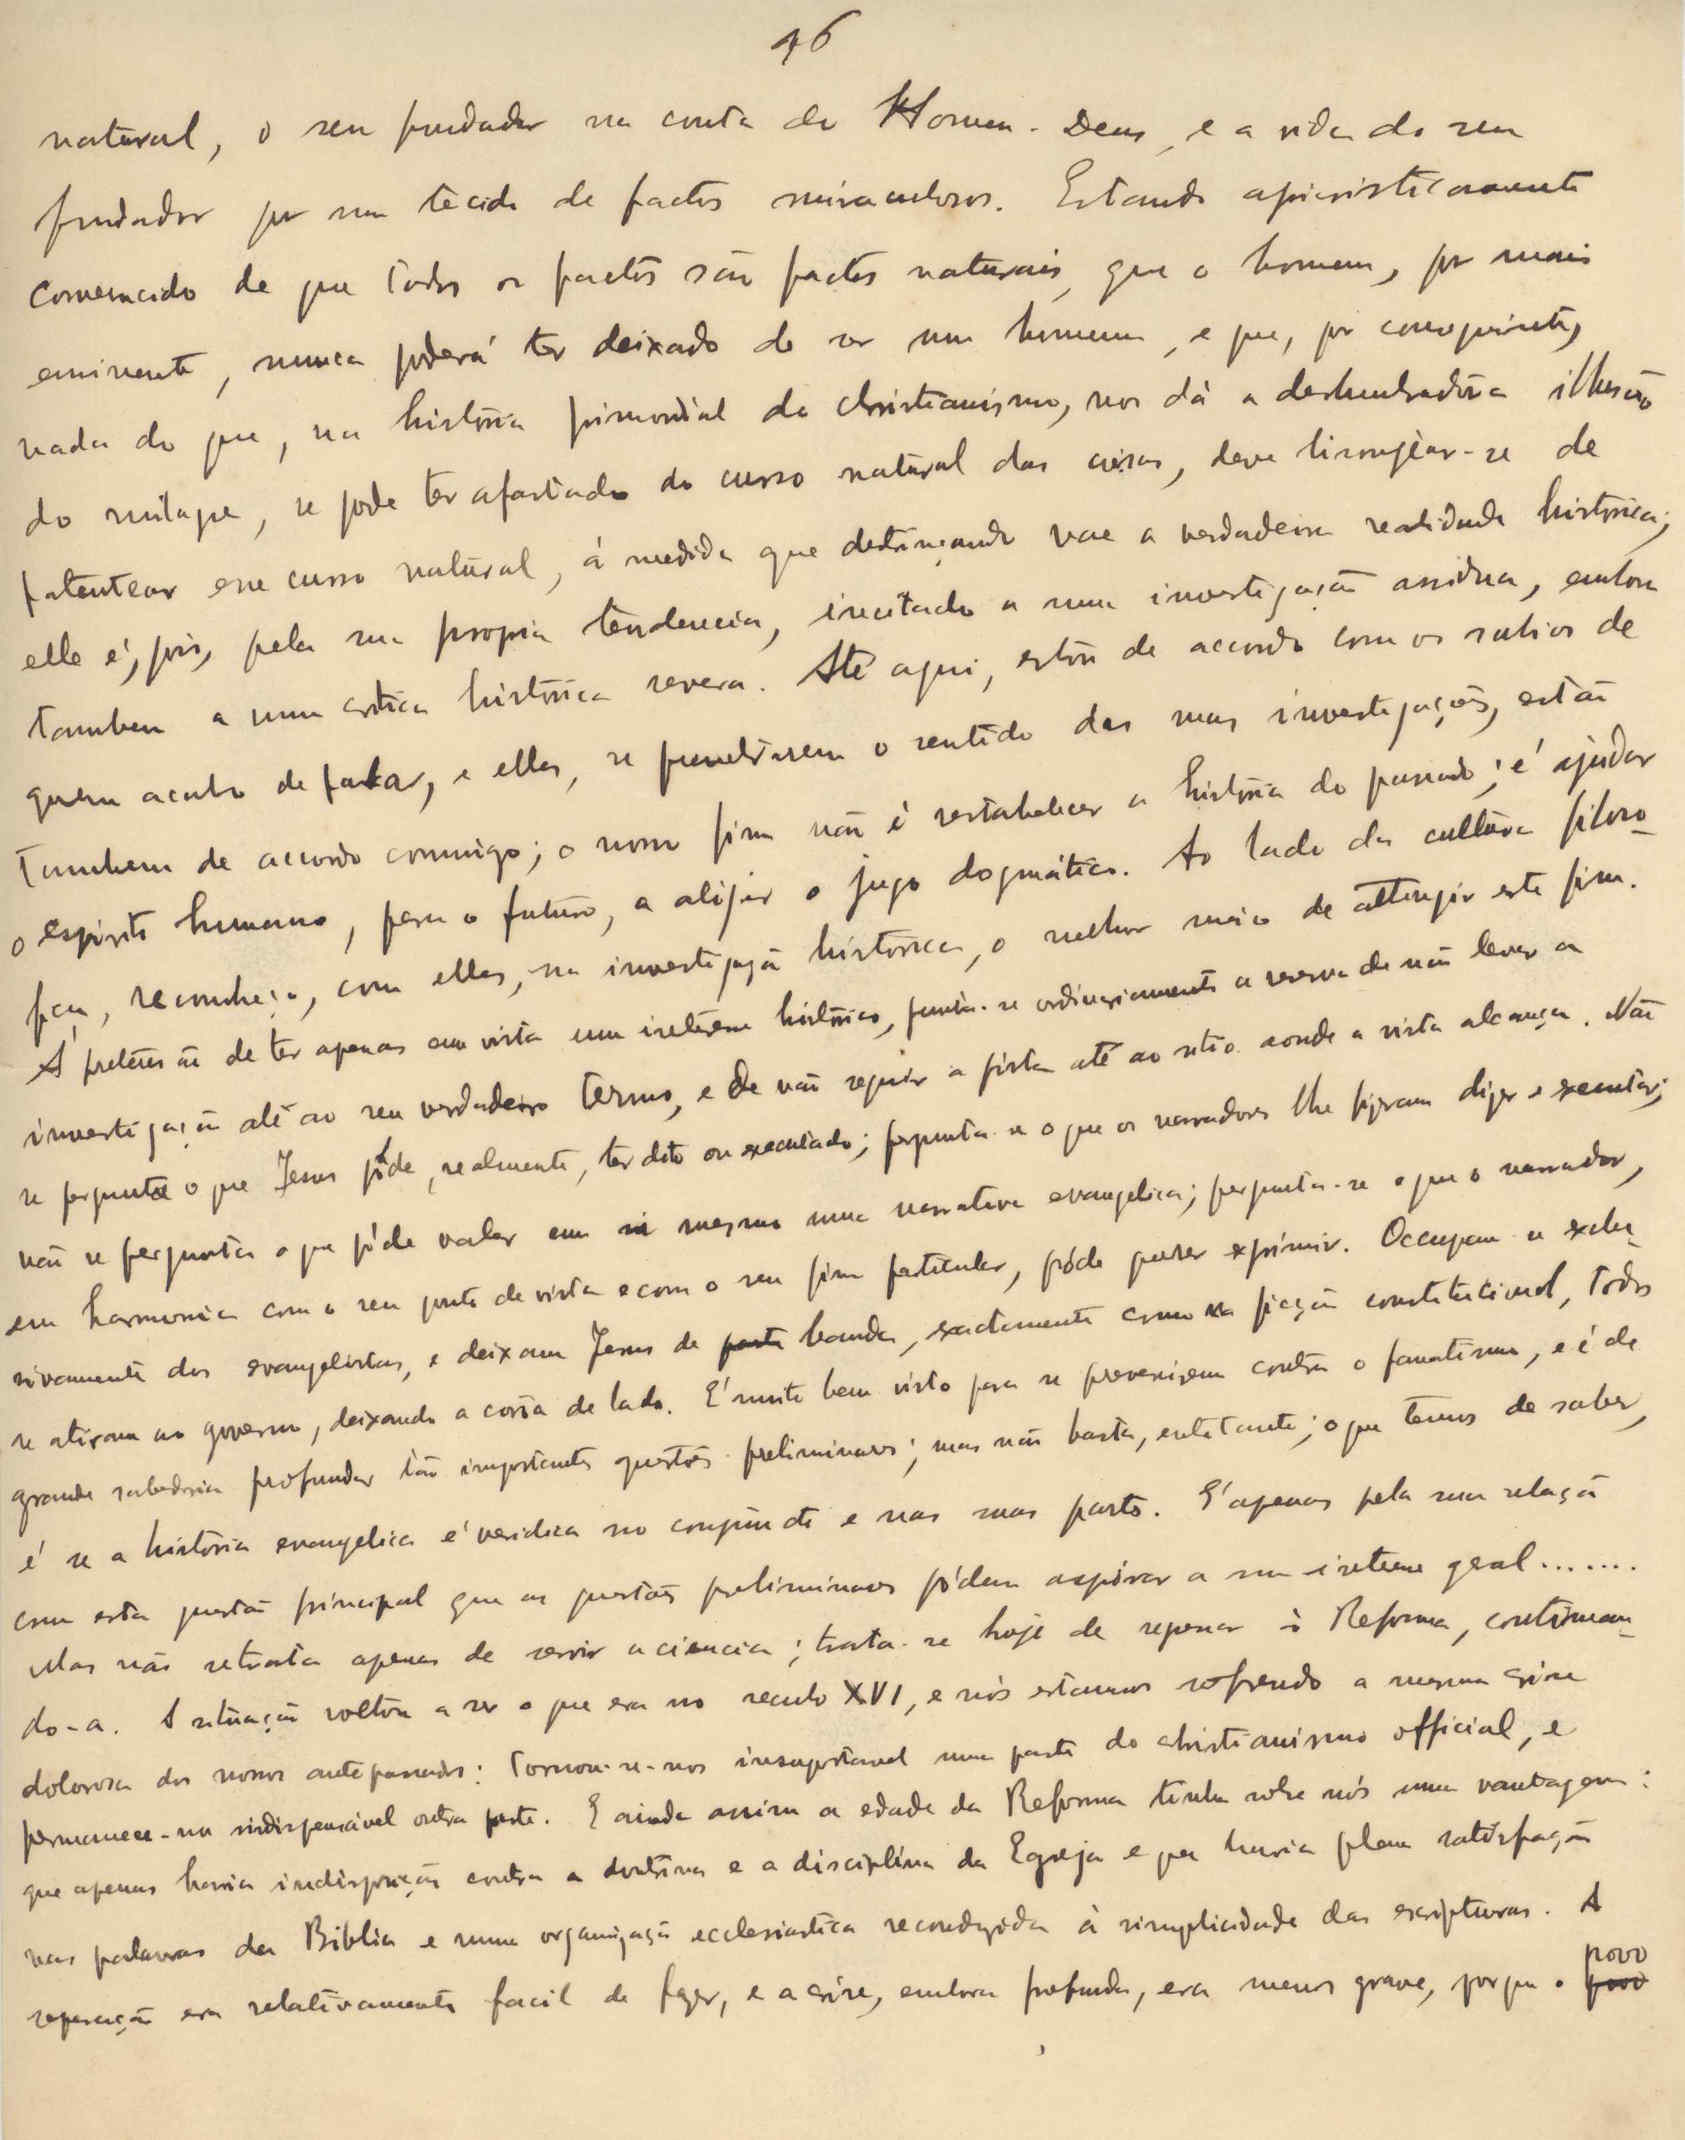 46
natural, o seu fundador na conta de Homem-Deus, e a vida do seu
fundador por um tecido de factos miraculosos. Estando aprioristicamente
convencido de que todos os factos são factos naturais, que o homem, por mais
eminente, nunca poderá ter deixado de ser um homem, e que, por conseguinte,
nada do que, na história primordial do christianismo, nos dá a deslumbradora illusão
do milagre, se pode ter afastado do curso natural das coisas, deve lisongear-se de
patentear esse curso natural, á medida que destrinçando vae a verdadeira realidade histórica;
elle é, pois, pela sua propria tendencia, incitado a uma investigação assidua, embora
tambem a uma critica histórica severa. Até aqui, estou de accordo com os sabios de
quem acabo de falar, e elles, se penetrarem o sentido das suas investigações, estão
tambem de accordo commigo; o nosso fim não é restabelecer a história do passado; é ajudar
o espirito humano, para o futuro, a alijar o jugo dogmático. Ao lado da cultura filoso-
fica, reconheço, com elles, na investigação histórica, o melhor meio de attingir este fim.
A' pretensão de ter apenas em vista um interesse histórico, junta-se ordinariamente a reserva de não levar a
investigação até ao seu verdadeiro termo, e de não seguir a pista até ao sitio aonde a vista alcança. Não
se pergunta o que Jesus póde, realmente, ter dito ou executado; pergunta-se o que os narradores lhe fizeram dizer e executar;
não se pergunta o que póde valer em si mesma uma narrativa evangelica; pergunta-se o que o narrador,
em harmonia com o seu ponto de vista e com o seu fim particular, póde querer exprimir. Occupam-se exclu-
sivamente dos evangelistas, e deixam Jesus de parte banda, exactamente como na ficção constitucional, todos
se atiram ao governo, deixando a corôa de lado. E' muito bem visto para se prevenirem contra o fanatismo, e é de
grande sabedoria profundar tão importantes questões preliminares; mas não basta, entretanto; o que temos de saber,
é se a história evangelica é veridica no conjuncto e nas suas partes. E' apenas pela sua relação
com esta questão principal que as questões preliminares pódem aspirar a um interesse geral.......
Mas não se trata apenas de servir a ciencia; trata-se hoje de repensar a Reforma, continuan-
do-a. A situação voltou a ser o que era no seculo XVI, e nós estamos sofrendo a mesma crise
dolorosa dos nossos antepassados: tornou-se-nos insuportavel uma parte do christianismo official, e
permanece-nos indispensável outra parte. E ainda assim a edade da Reforma tinha sobre nós uma vantagem:
que apenas havia indisposição contra a doutrina e a disciplina da Egreja e que havia plena satisfação
nas palavras da Biblia e numa organização ecclesiastica reconduzida á simplicidade das escripturas. A
separação era relativamente facil de fazer, e a crise, embora profunda, era menos grave, porque o povo
povo